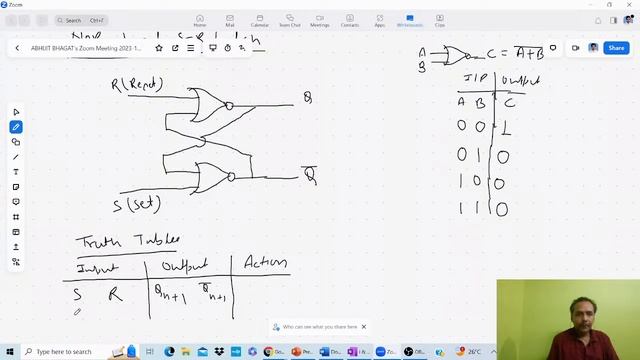 Zoom
Search
Ctrl+K
Home
Meetings
Team Chat
Phone
Mail
Calendar
Whiteboards
Clips
More
ABHIJIT BHAGAT's Zoom Meeting 2023-1...
A
B
C = A+B
I/P Output
A B C
0 0 1
0 1 0
1 0 0
1 1 0
R (Reset)
Q
Q
S (Set)
Truth Tables
Input Output Action
S R Qn+1 Qn+1
0
Who can see what you share here
Type here to search
26°C